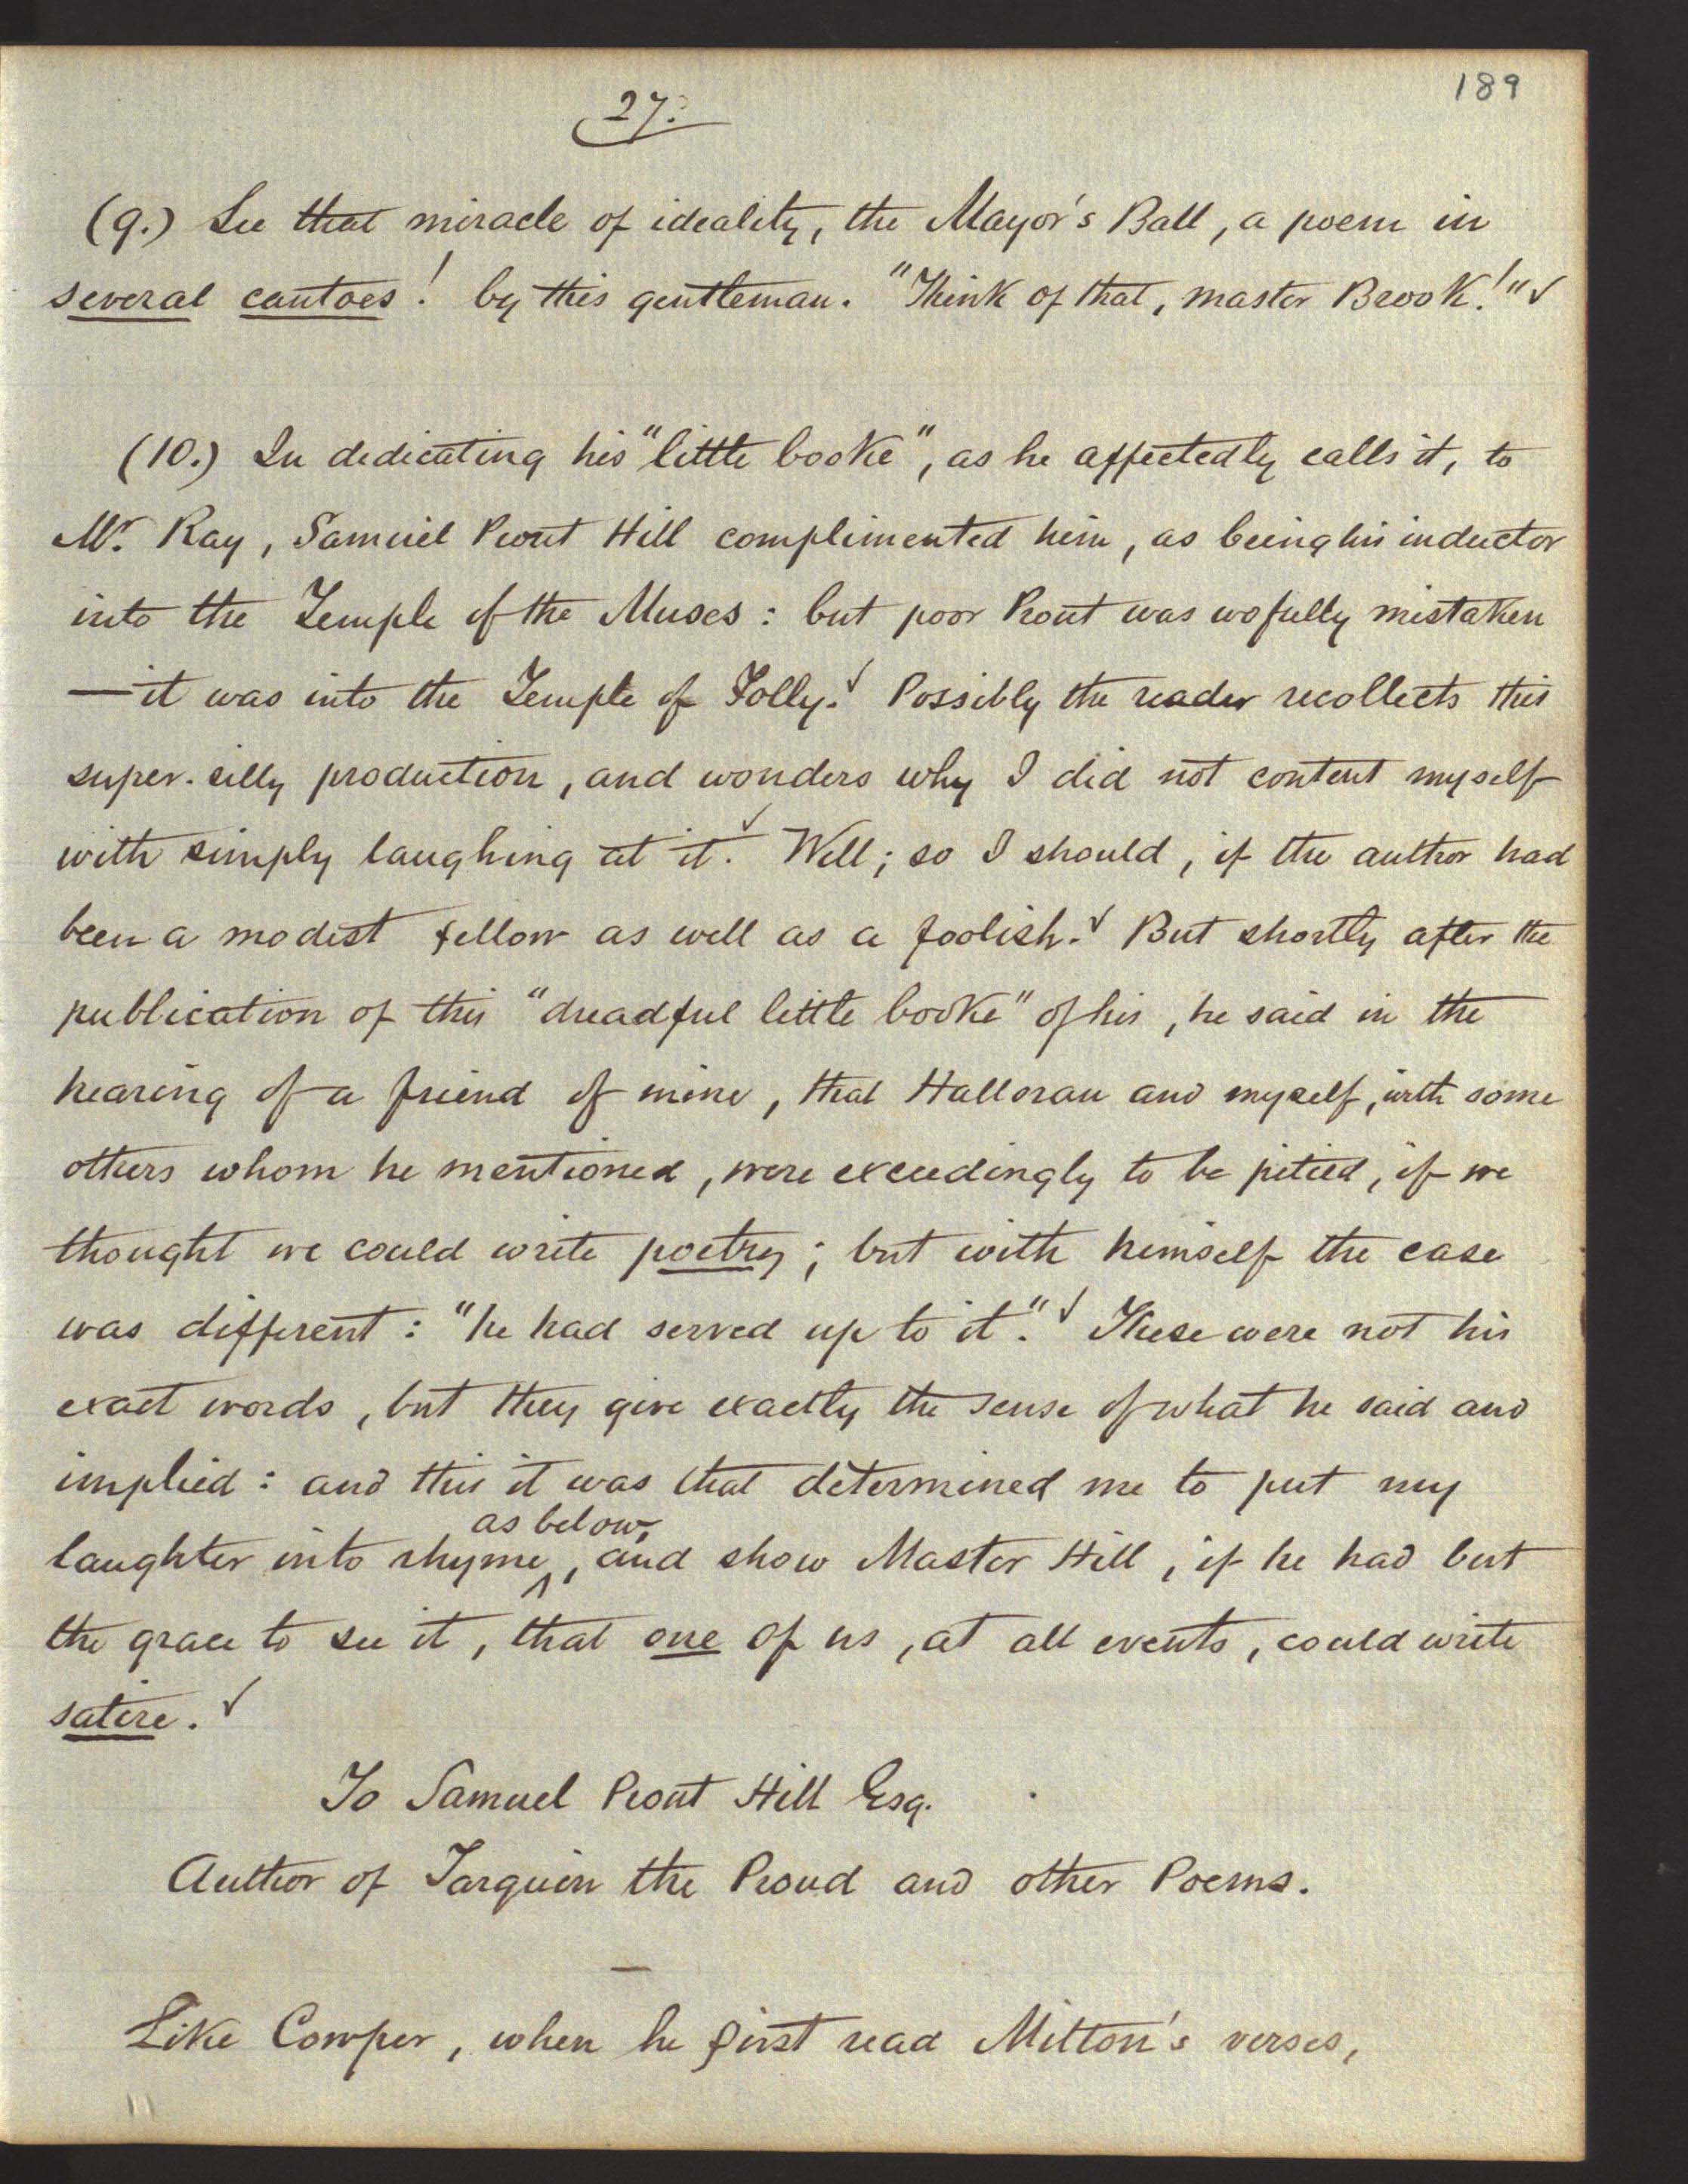 189
27.
(9.) See that miracle of ideality, the Mayor's Ball, a poem in
several cantoes! by this gentleman. "Think of that, master Brook!" ✓
(10.) In dedicating his "little booke", as he affectedly calls it, to
Mr. Ray, Samuel Prout Hill complimented him, as being his inductor
into the Temple of the Muses: but poor Prout was wofully mistaken
— it was into the Temple of Folly. ✓ Possibly the reader recollects this
super-silly production, and wonders why I did not content myself
with simply laughing at it. ✓ Well; so I should, if the author had
been a modest fellow as well as a foolish. ✓ But shortly after the
publication of this "dreadful little booke" of his, he said in the
hearing of a friend of mine, that Halloran and myself, with some
others whom he mentioned, were exceedingly to be pitied, if we
thought we could write poetry; but with himself the case
was different: "he had served up to it". ✓ These were not his
exact words, but they give exactly the sense of what he said and
implied: and this it was that determined me to put my
as below,
laughter into rhyme ^, and show Master Hill, if he had but
the grace to see it, that one of us, at all events, could write
satire. ✓
To Samuel Prout Hill Esq.
Author of Tarquin the Proud and other Poems.
—
Like Cowper, when he first read Milton's verses,